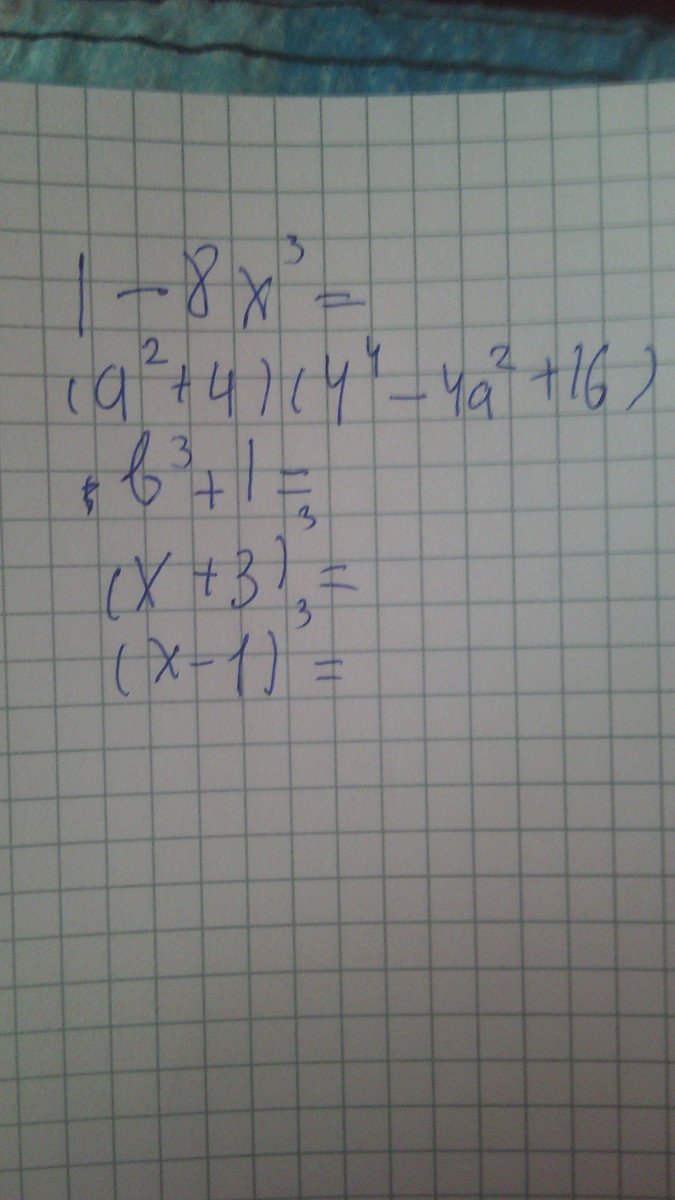 1 - 8x³ =
(a² + 4)(4⁴ - 4a² + 16)
в³ + 1 =
(x + 3)³ =
(x - 1)³ =